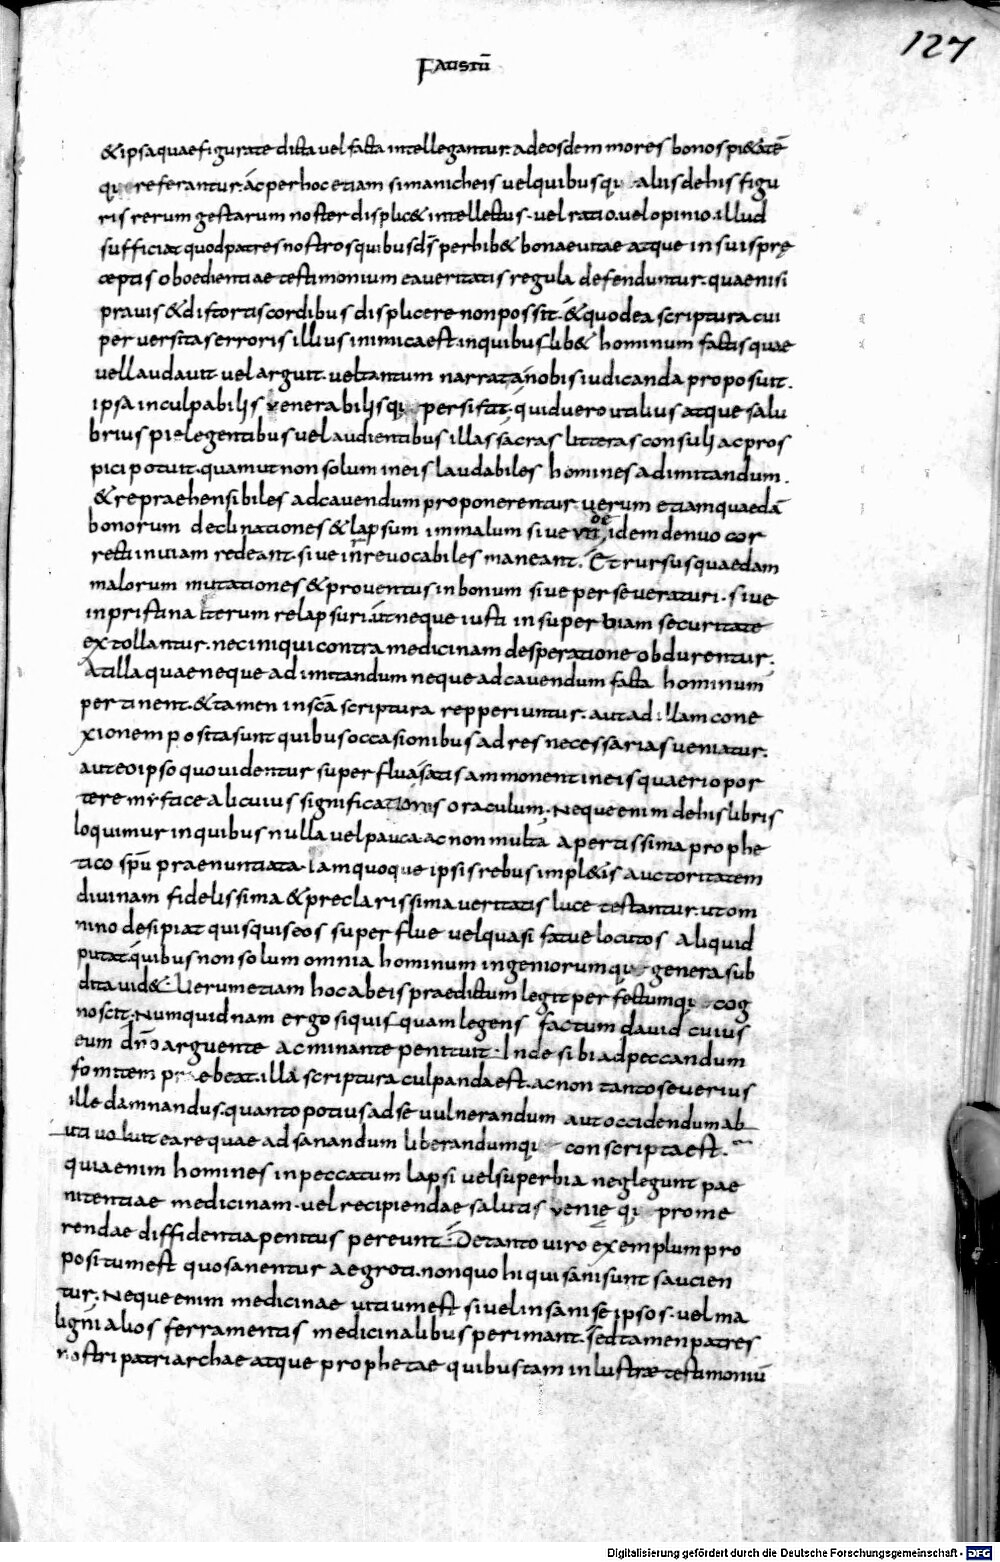 127
FAUSTŪ
& ipsa quae figurate dicta vel facta intellegantur ad eosdem mores bonos pi&atē
qu referantur. ac per hoc etiam si manicheis vel quibusqu aliis de his figu
ris rerum gestarum noster displic& intellectus. vel ratio. vel opinio. illud
sufficiat quod patres nostros quibus ds perhib& bonae vitae atque in suis prę
ceptis oboedientiae testimonium ea veritatis regula defenduntur. quae nisi
pravis & distortis cordibus displicere non possit. & quod ea scriptura cui
perversitas erroris illius inimica est. in quibuslib& hominum factis quae
vel laudavit. vel arguit. vel tantum narrata nobis iudicanda proposuit.
ipsa inculpabilis venerabilisqu persistit. quid vero utilius atque salu
brius pie legentibus vel audientibus illas sacras litteras consuli ac pros
pici potuit. quam ut non solum in eis laudabiles homines ad imitandum.
& reprahensibiles ad cavendum proponerentur. verum etiam quaedā
bonorum declinationes & lapsum in malum sive idem denuo cor
recti in viam redeant. sive inrevocabiles maneant. Et rursus quaedam
malorum mutationes & proventus in bonum sive perseveraturi. sive
in pristina iterum relapsuri. ut neque iusti in superbiam securitate
extollantur. nec iniqui contra medicinam desperatione obdurentur.
At illa quae neque ad imitandum neque ad cavendum facta hominum
pertinent. & tamen in scā scriptura repperiuntur. aut ad illam cone
xionem posita sunt quibus occasionibus ad res necessarias veniatur.
aut eo ipso quo videntur superflua satis ammonent in eis quaeri opor
tere mysticae alicuius significationis oraculum. Neque enim de his libris
loquimur in quibus nulla vel pauca. ac non multa apertissima prophe
tico spū praenuntiata. Iam quoque ipsis rebus impl&is auctoritatem
divinam fidelissima & preclarissima veritatis luce testantur. ut om
nino desipiat quisquis eos superflue vel quasi fatue locutos aliquid
putat. quibus non solum omnia hominum ingeniorumqu genera sub
dita vid&. Verum etiam hoc ab eis praedictum legit perfectumqu cog
noscit. Numquidnam ergo siquis quam legens factum david cuius
eum dno arguente ac minante penituit. Inde sibi ad peccandum
fomitem praebeat. illa scriptura culpanda est. ac non tanto severius
ille damnandus. quanto potius ad se vulnerandum aut occidendum ab
uti voluit ea re quae ad sanandum liberandumqu conscripta est.
quia enim homines in peccatum lapsi vel superbia neglegunt pae
nitentiae medicinam. vel recipiendae salutis venię qu prome
rendae diffidentia penitus pereunt. De tanto viro exemplum pro
positum est quo sanentur aegroti. non quo hi qui sani sunt saucien
tur. Neque enim medicinae vitium est si vel insani se ipsos. vel ma
ligni alios ferramentis medicinalibus perimant. Sed tamen patres
nostri patriarchae atque prophetae quibus tam inlustrae testimoniū
Digitalisierung gefördert durch die Deutsche Forschungsgemeinschaft - DFG